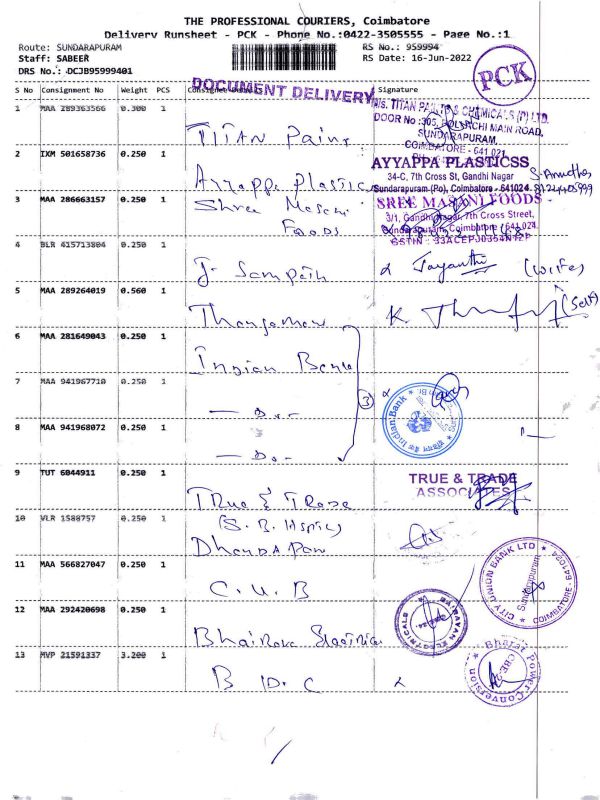 THE PROFESSIONAL COURIERS, Coimbatore
Delivery Runsheet - PCK - Phone No.:0422-3505555 - Page No.:1
Route: SUNDARAPURAM
Staff: SABEER
DRS No.: DCJB95999401
RS No.: 959994
RS Date: 16-Jun-2022
PCK
DOCUMENT DELIVERY
S No Consignment No Weight PCS Signature
1 MAA 289363566 0.300 1
TITAN Paint
M/s. TITAN PAINTS & CHEMICALS (P) LTD.
DOOR No :305, POLLACHI MAIN ROAD,
SUNDARAPURAM,
COIMBATORE - 641 021
2 IXM 501658736 0.250 1
Ayyappa Plastic
AYYAPPA PLASTICSS
34-C, 7th Cross St, Gandhi Nagar
Sundarapuram (Po), Coimbatore - 641024.
3 MAA 286663157 0.250 1
Shree Masani
Foods
SREE MASANI FOODS
3/1, Gandhi Nagar, 7th Cross Street,
Sundarapuram, Coimbatore - 641 024.
4 BLR 415713804 0.250 1
J. Sampath
Jayanthi (Wife)
5 MAA 289264019 0.560 1
K. (Self)
6 MAA 281649043 0.250 1
Indian Bank
7 MAA 941967710 0.250 1
— Do —
3
Indian Bank
8 MAA 941968072 0.250 1
— Do —
9 TUT 6044911 0.250 1
True & Trade
TRUE & TRADE
ASSOCIATES
10 VLR 1588757 0.250 1
Dhandapani
11 MAA 566827047 0.250 1
C.U.B
CITY UNION BANK LTD
Sundarapuram
COIMBATORE - 641024
12 MAA 292420698 0.250 1
Bhairava Electricals
13 MVP 21591337 3.200 1
B P.C
Bharat Power Conversion
CBE-